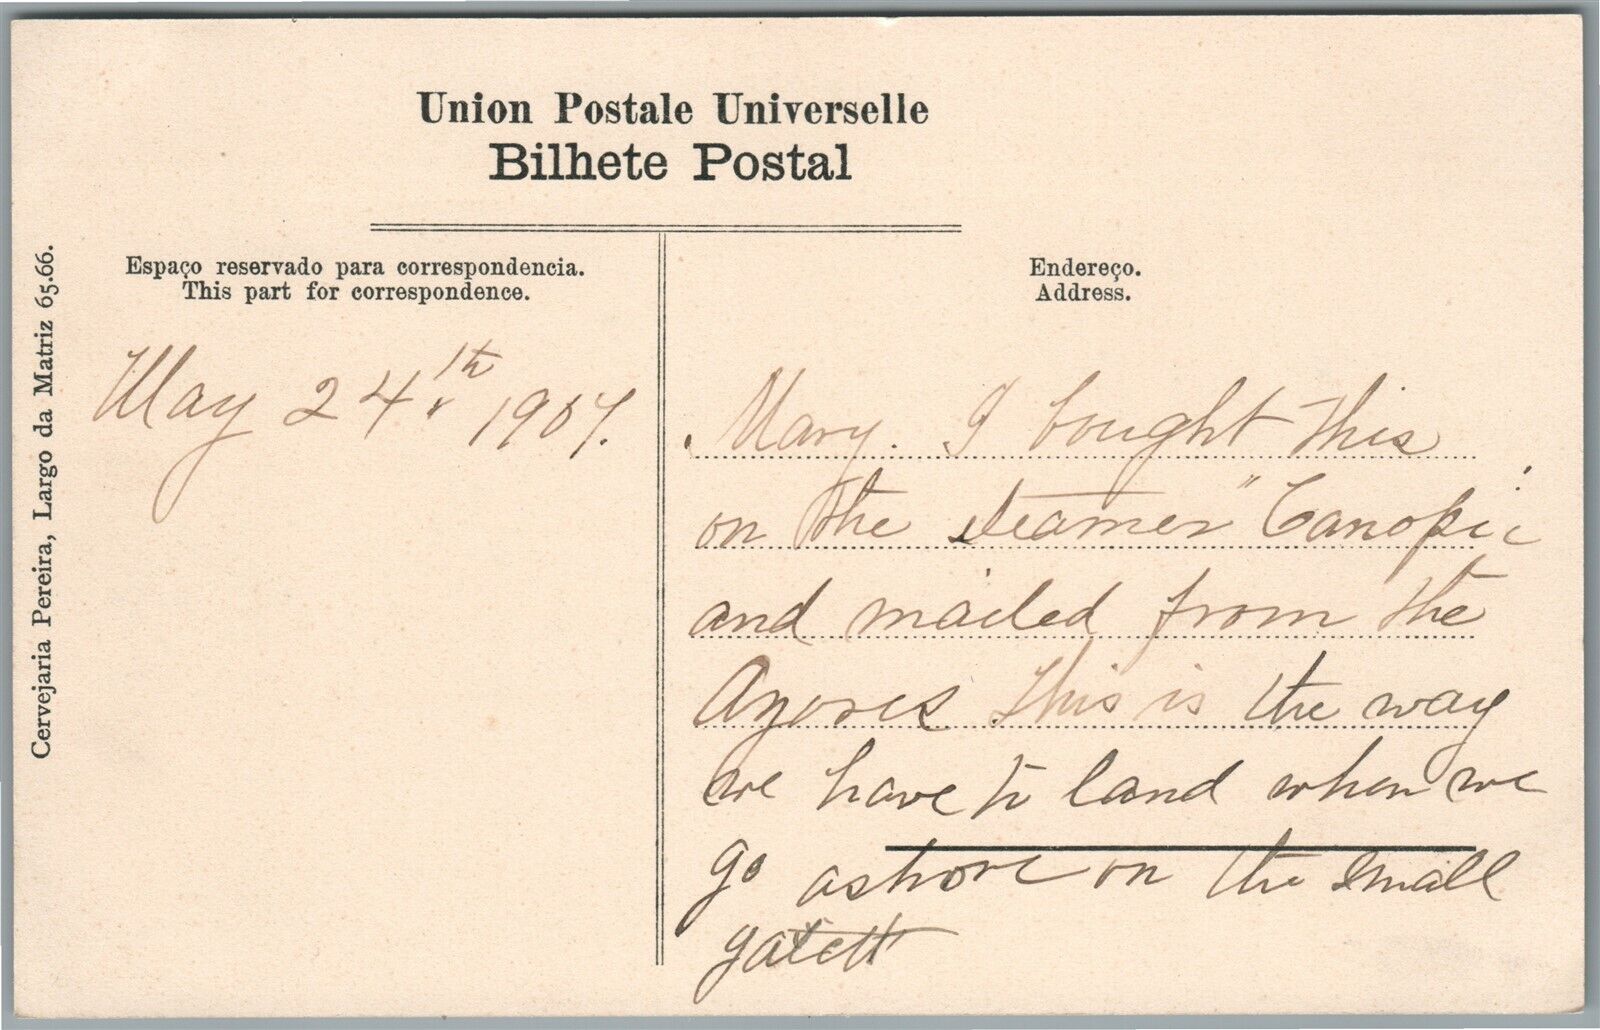 Union Postale Universelle
Bilhete Postal
Espaço reservado para correspondencia.
This part for correspondence.
Endereço.
Address.
Cervejaria Pereira, Largo da Matriz 65.66.
May 24th, 1907.
Mary. I bought this
on the steamer "Canopic
and mailed from the
Azores This is the way
we have to land when we
go ashore on the small